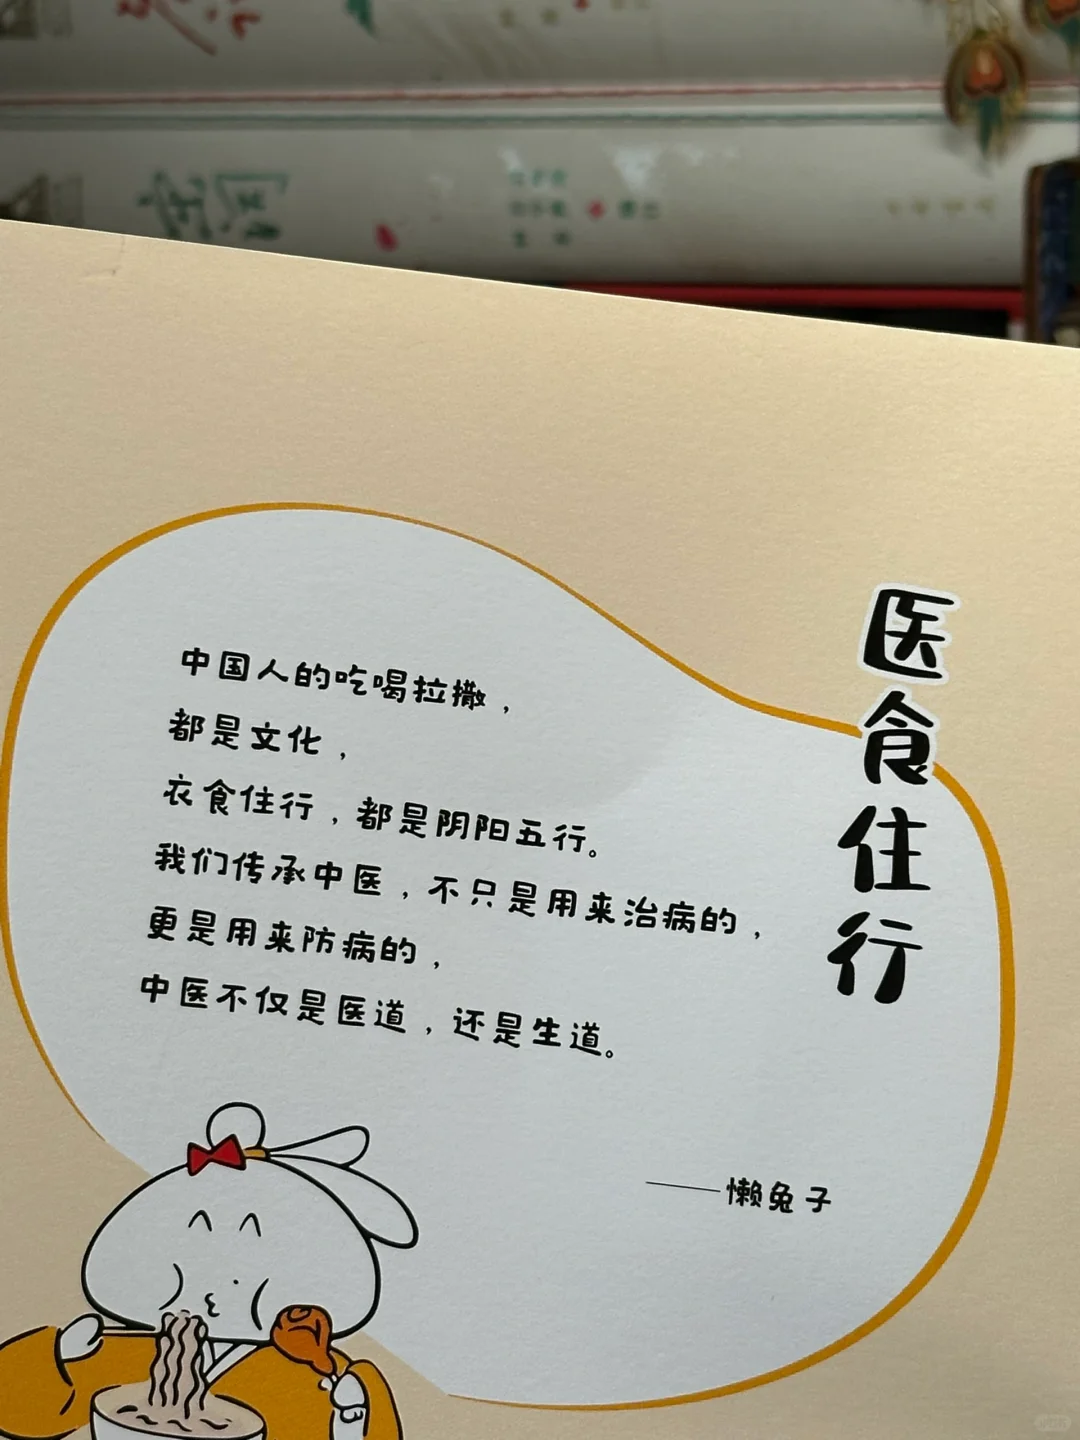 医食住行
中国人的吃喝拉撒，
都是文化，
衣食住行，都是阴阳五行。
我们传承中医，不只是用来治病的，
更是用来防病的，
中医不仅是医道，还是生道。
——懒兔子